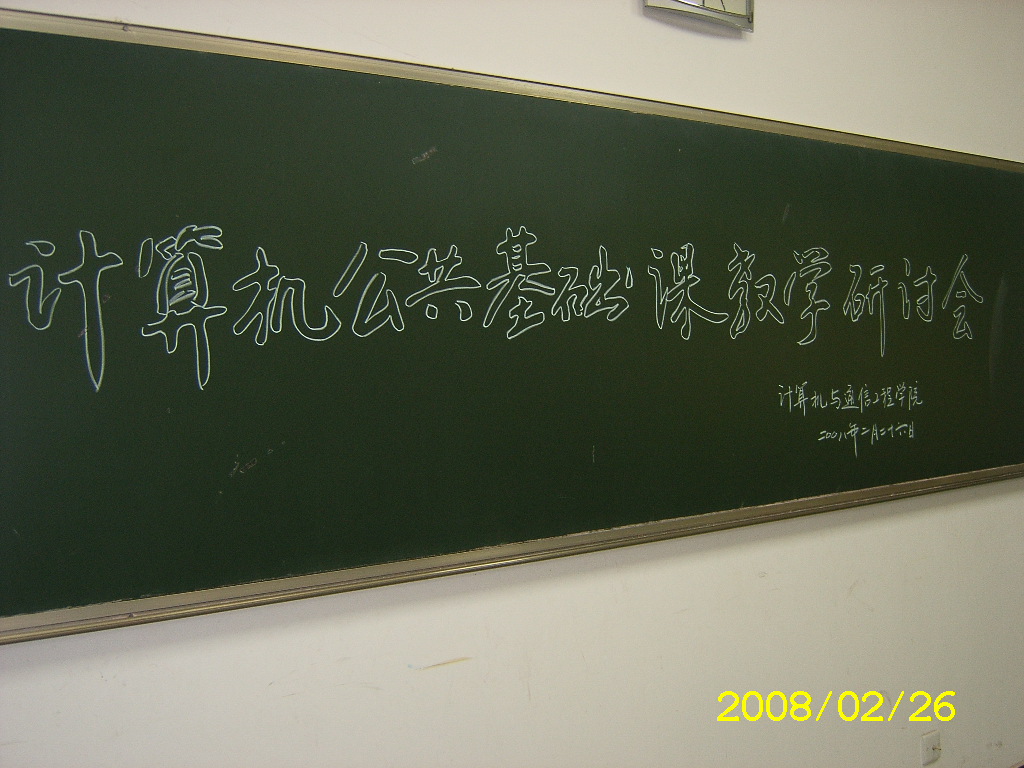 计算机公共基础课教学研讨会
计算机与通信工程学院
二00八年二月二十六日
2008/02/26